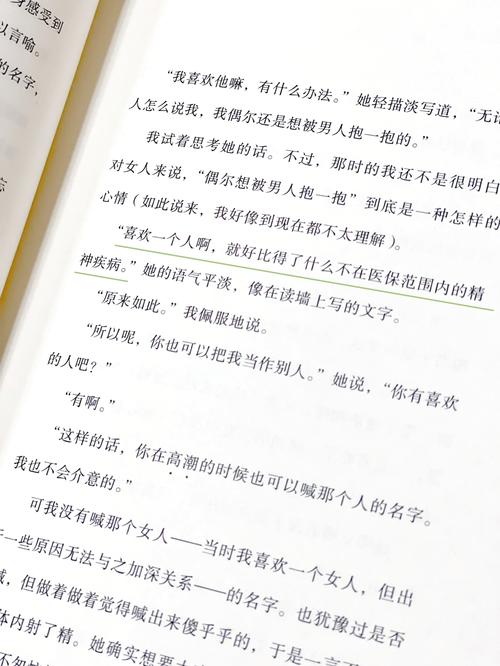 身感受到
以言喻。
的名字，
“我喜欢他嘛，有什么办法。”她轻描淡写道，“无论
人怎么说我，我偶尔还是想被男人抱一抱的。”
我试着思考她的话。不过，那时的我还不是很明白
对女人来说，“偶尔想被男人抱一抱”到底是一种怎样的
心情（如此说来，我好像到现在都不太理解）。
“喜欢一个人啊，就好比得了什么不在医保范围内的精
神疾病。”她的语气平淡，像在读墙上写的文字。
“原来如此。”我佩服地说。
“所以呢，你也可以把我当作别人。”她说，“你有喜欢
的人吧？”
“有啊。”
“这样的话，你在高潮的时候也可以喊那个人的名字。
我也不会介意的。”
可我没有喊那个女人——当时我喜欢一个女人，但出
于一些原因无法与之加深关系——的名字。也犹豫过是否
喊，但做着做着觉得喊出来傻乎乎的，于是一言不
体内射了精。她确实想要大